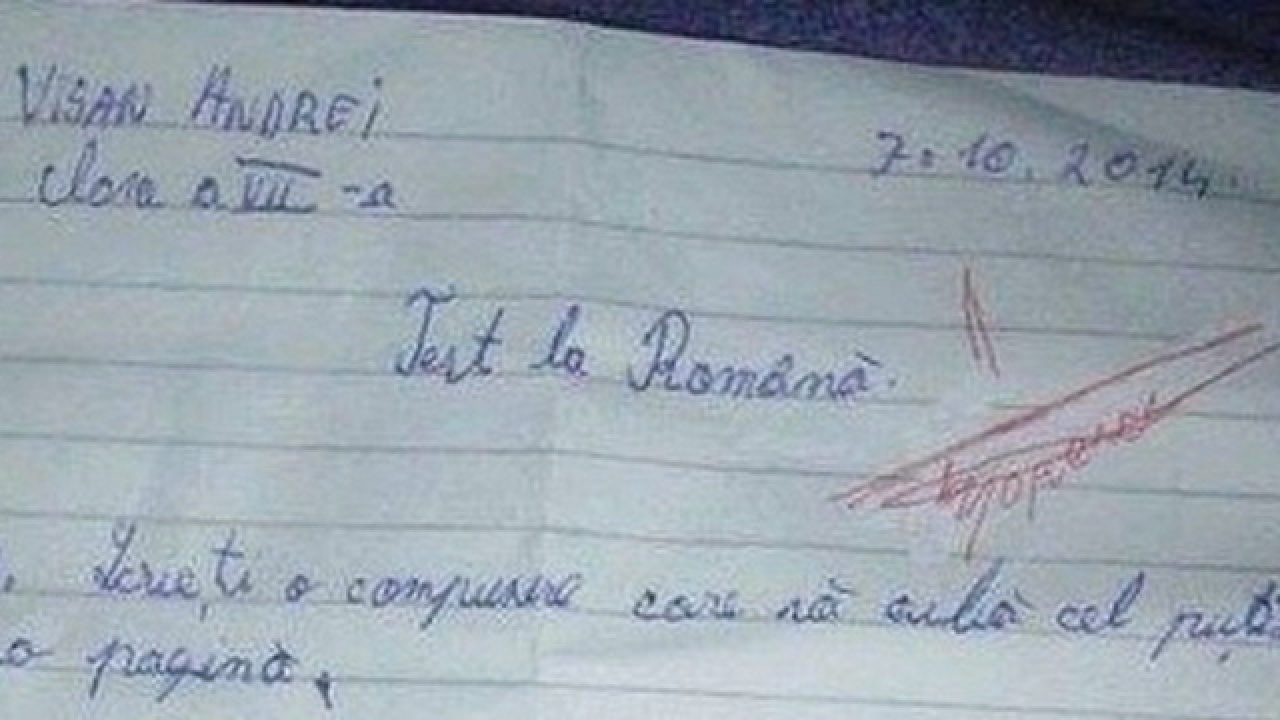 VISAN ANDREI
7.10.2014.
Clasa a VII -a
Test la Română.
Scrieți o compunere care să aibă cel puțin
o pagină.